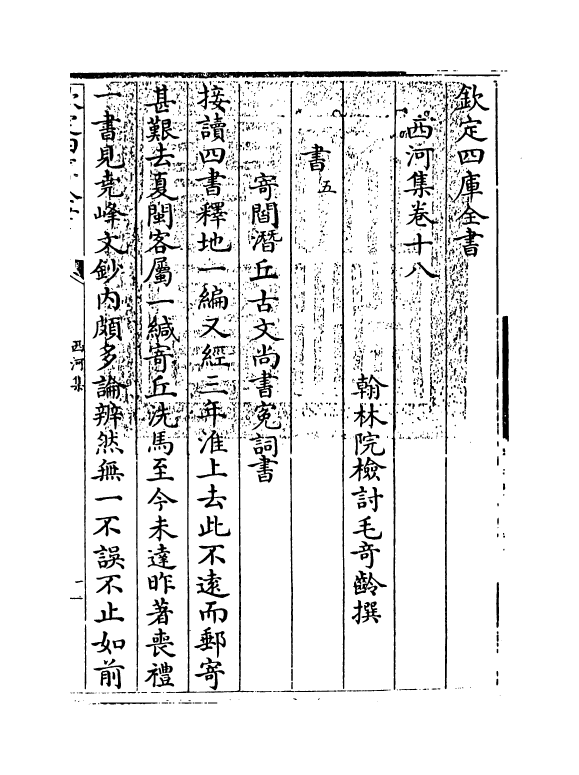 欽定四庫全書
西河集卷十八
翰林院檢討毛奇齡撰
書五
寄閻潛丘古文尚書寃詞書
接讀四書釋地一編又經三年淮上去此不遠而郵寄
甚艱去夏閩客屬一緘寄丘洗馬至今未達昨著喪禮
一書見堯峰文鈔内頗多論辨然無一不誤不止如前
西河集